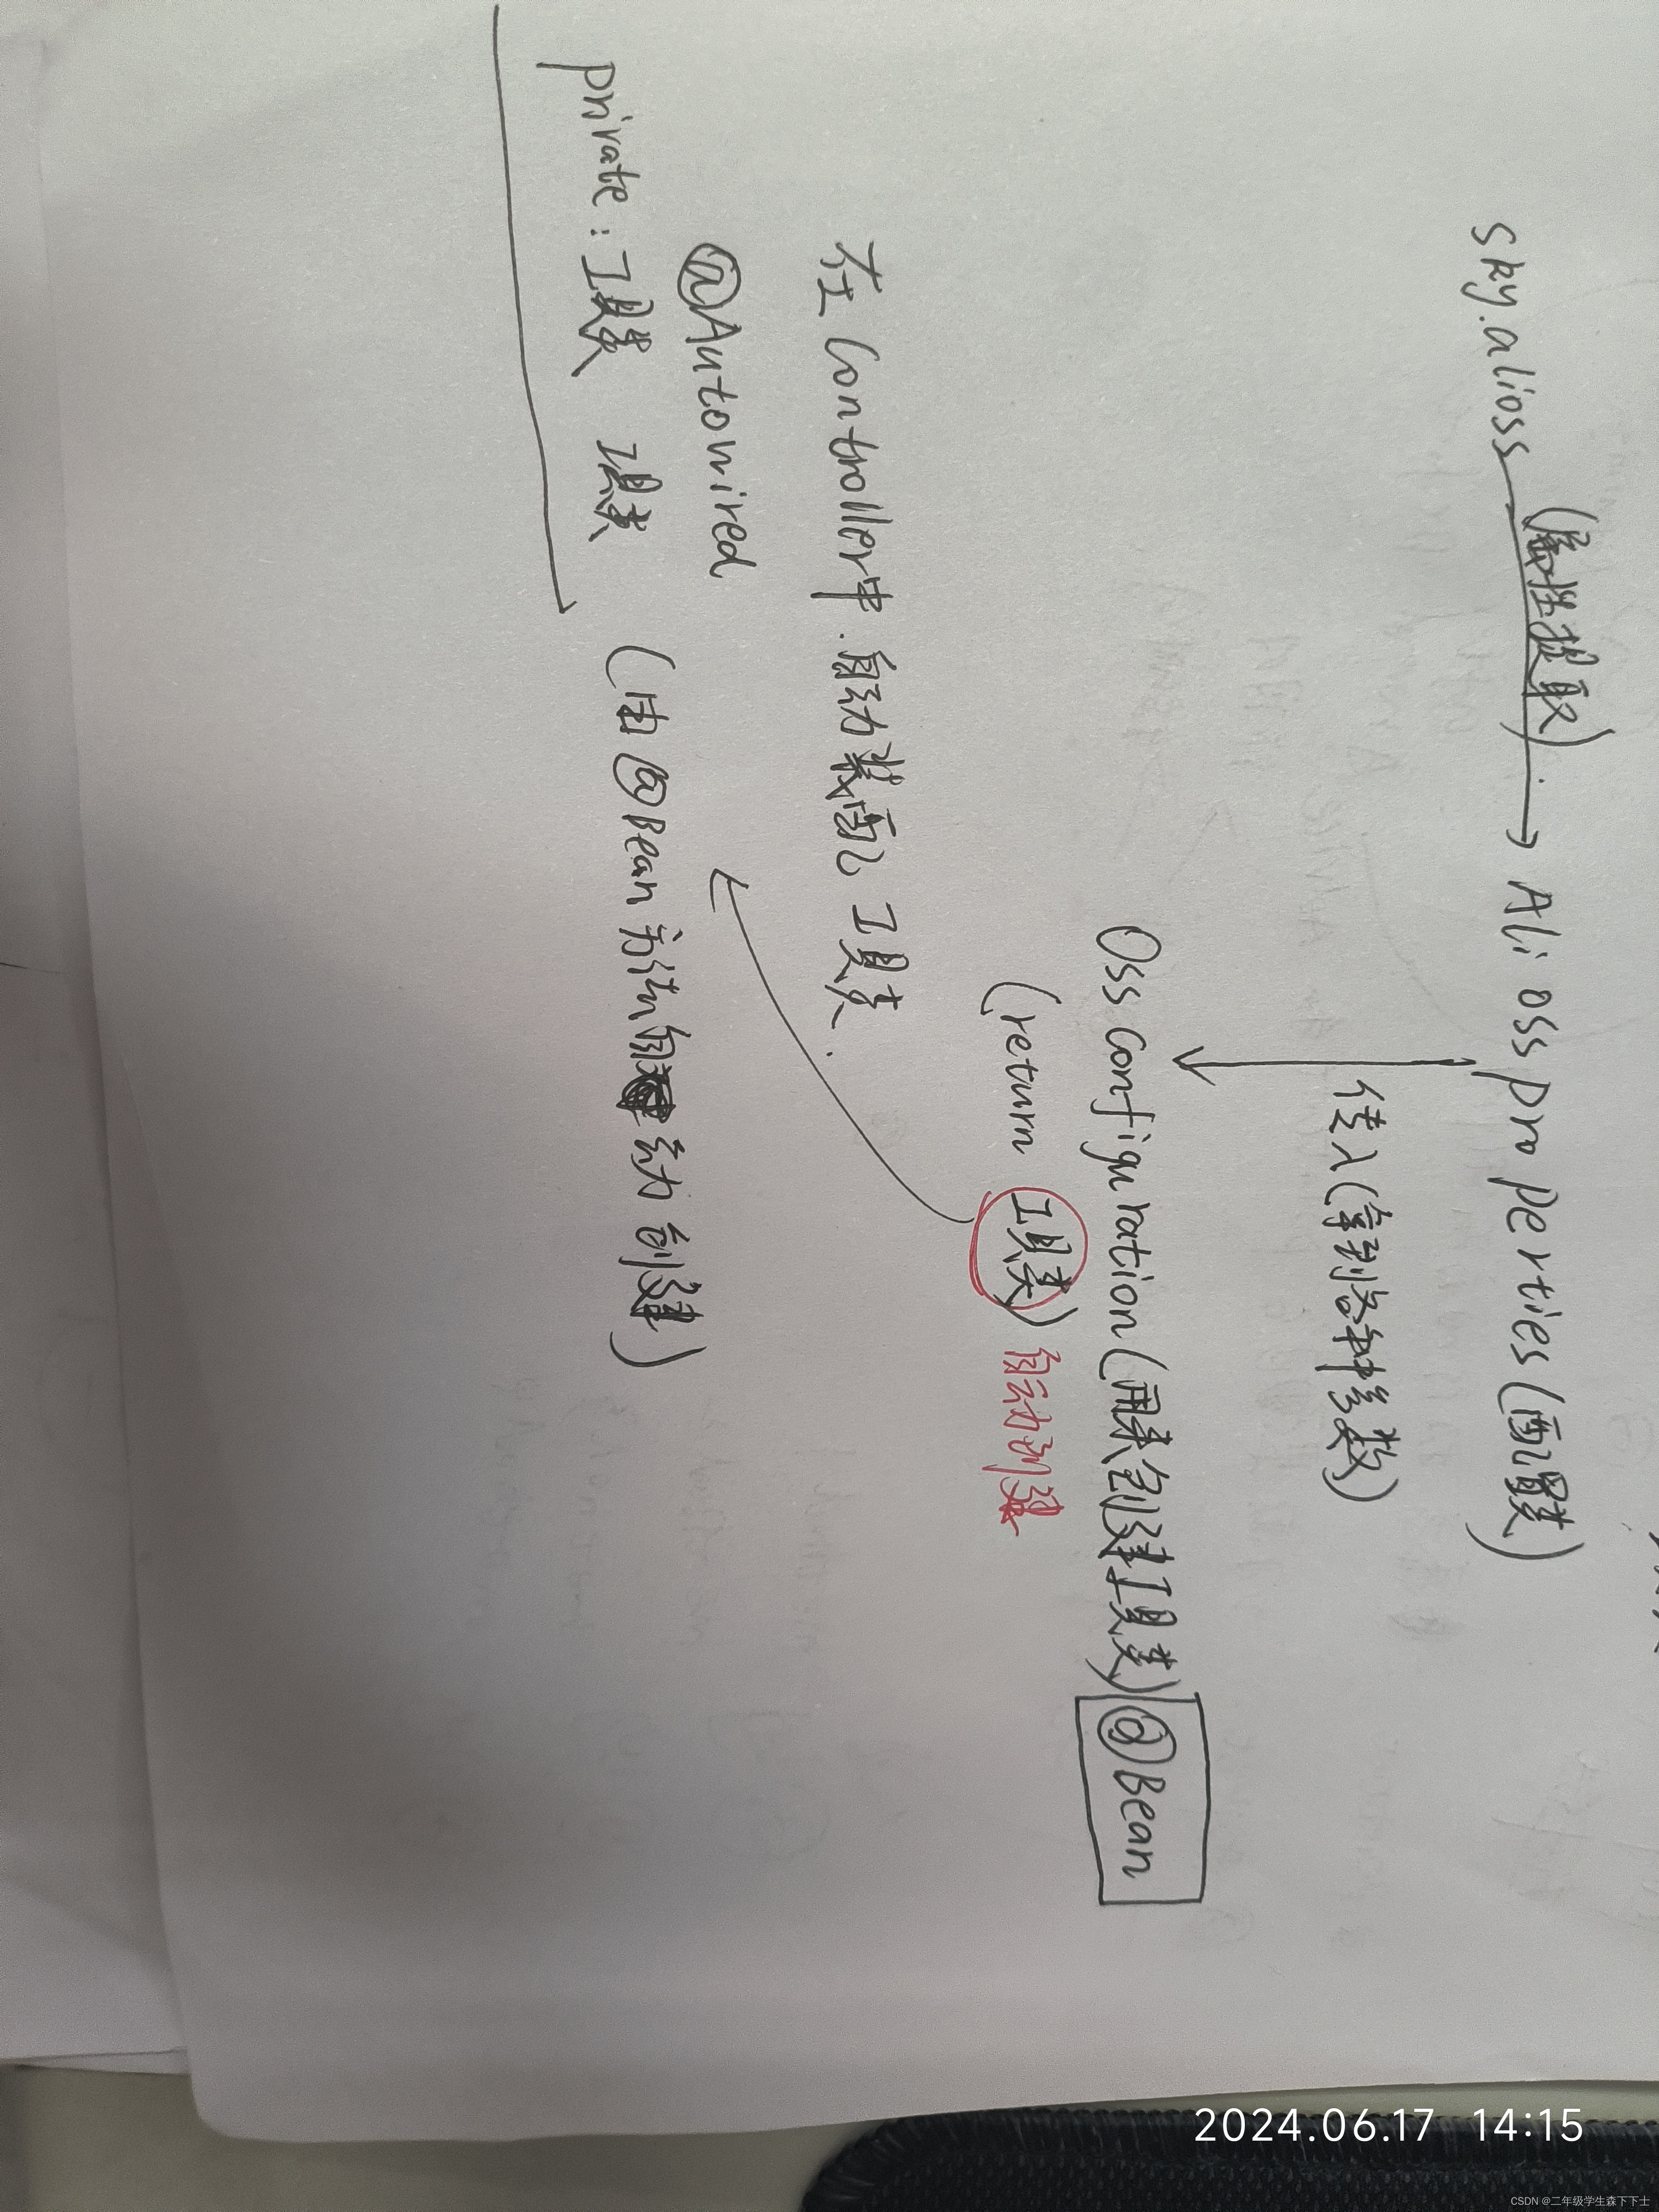 sky.alioss (属性提取) → Ali oss properties (配置类)
传入(拿到各种参数)
Oss configuration (用来创建工具类) @Bean
(return 工具类) 自动创建
在 Controller中.自动装配 工具类.
@Autowired
private : 工具类 工具类 (由@Bean方法自动创建)
2024.06.17 14:15
CSDN @二年级学生森下下士